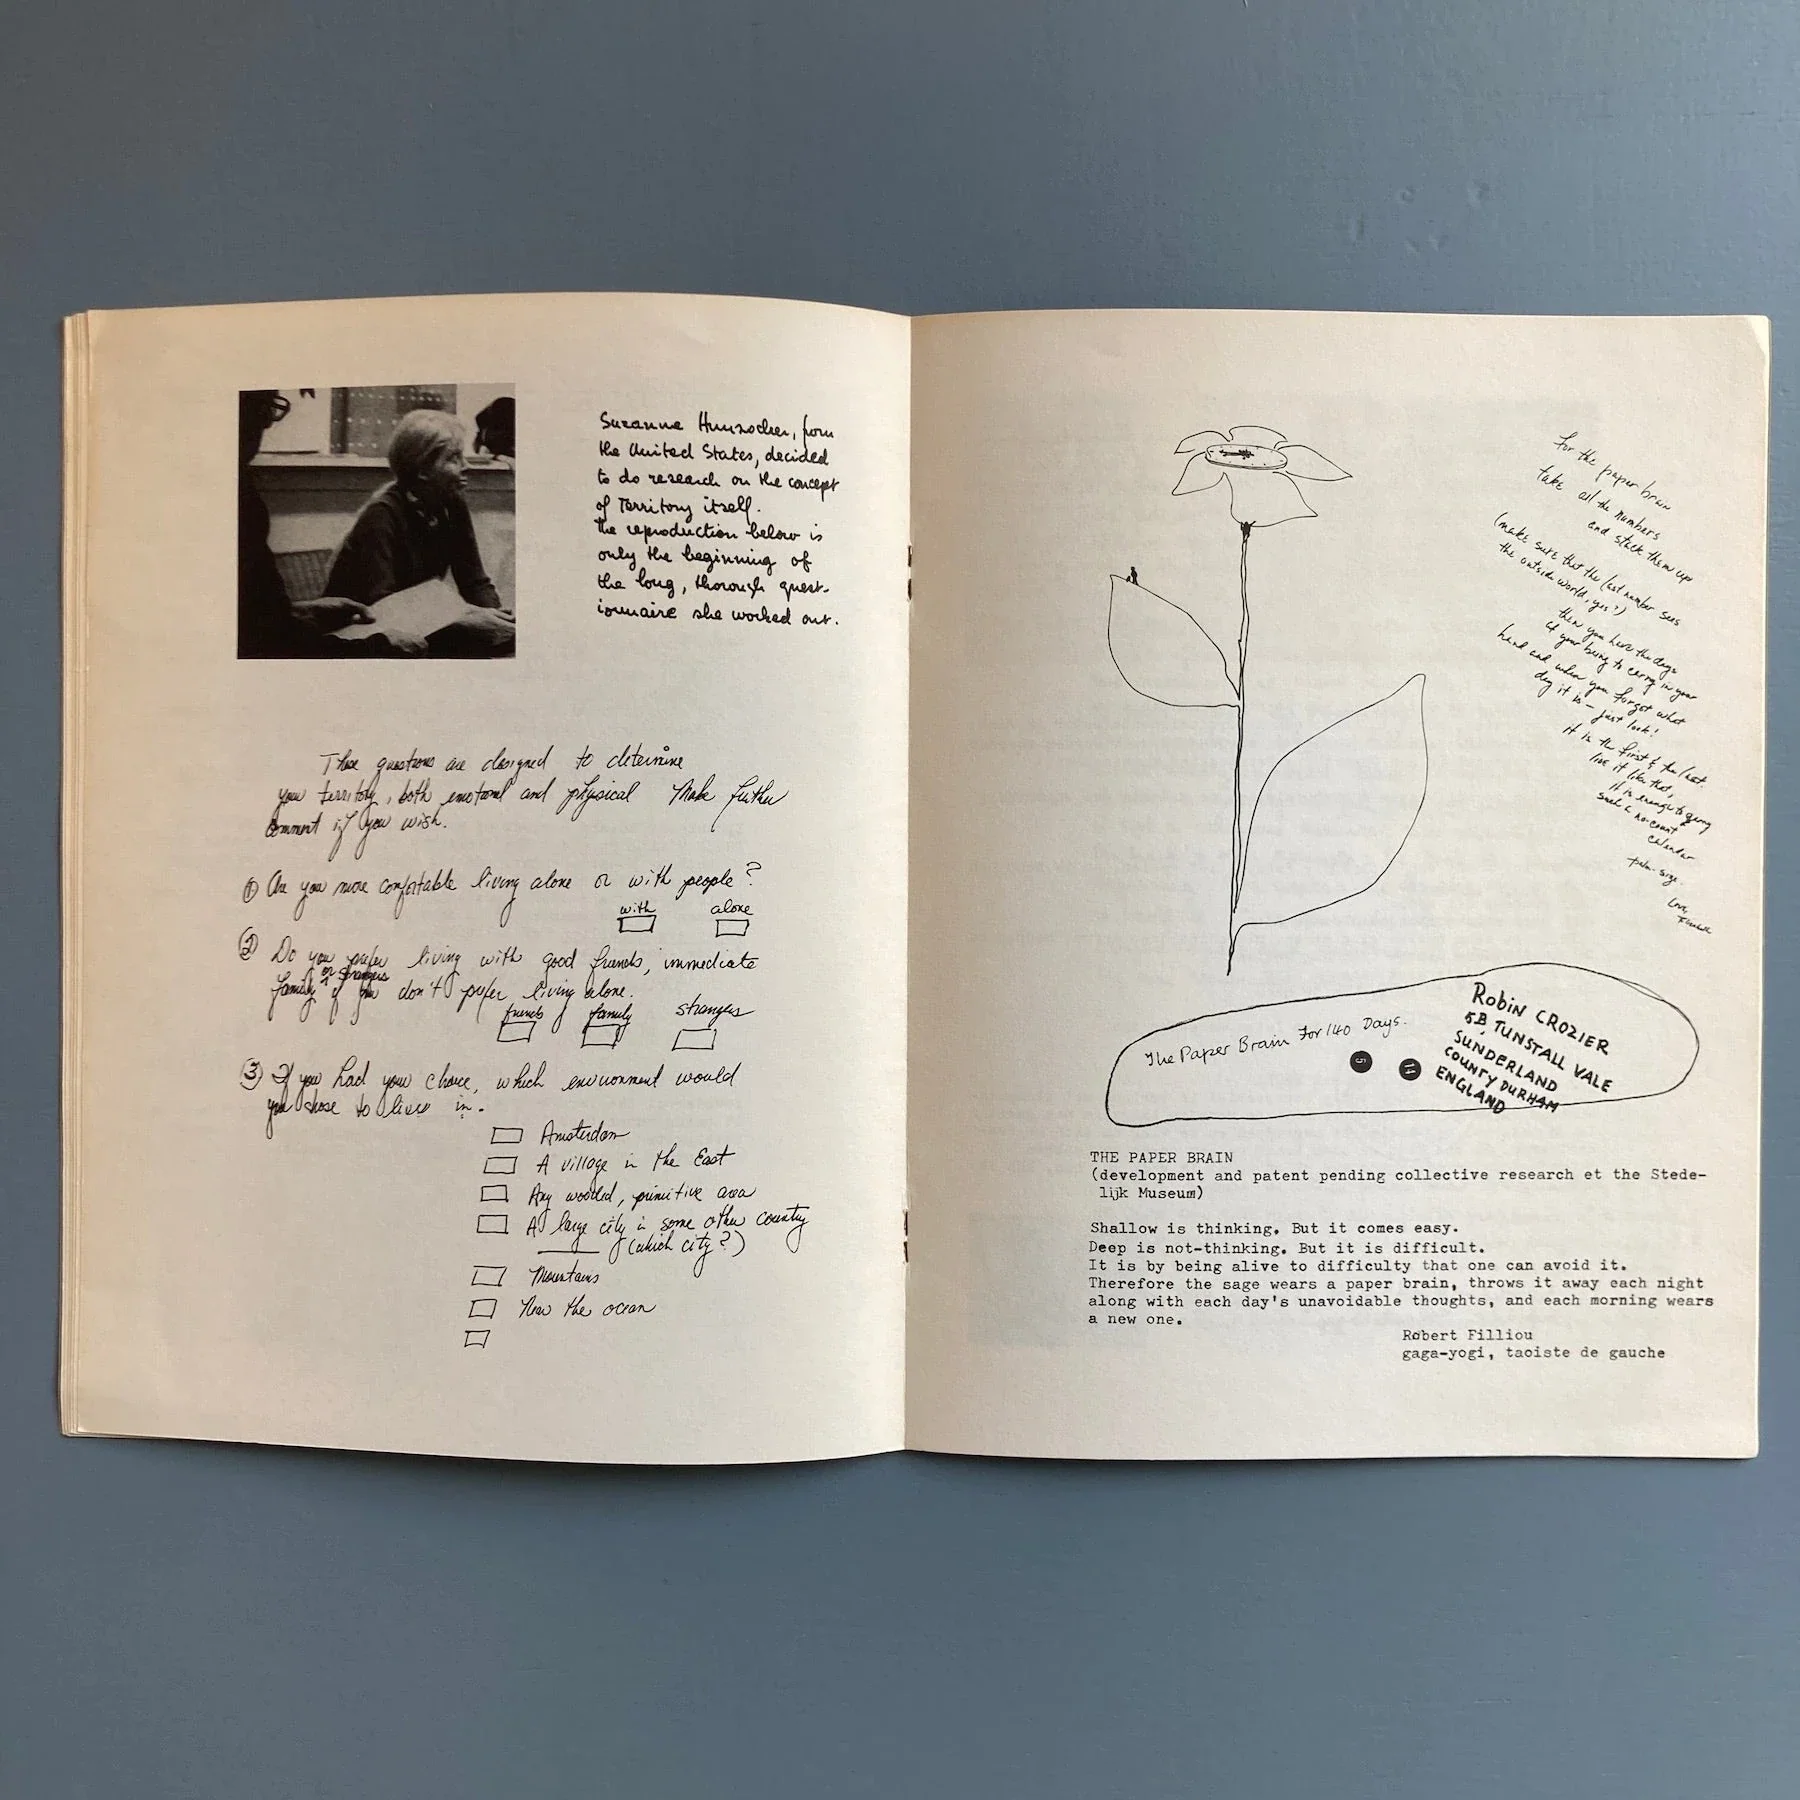 Suzanne, from
the United States, decided
to do research on the concept
of Territory itself.
the reproduction below is
only the beginning of
the long, thorough quest-
ionnaire she worked out.
These questions are designed to determine
your territory, both emotional and physical Make further
comment if you wish.
① Are you more comfortable living alone or with people?
with alone
② Do you prefer living with good friends, immediate
family or strangers if you don't prefer living alone.
friends family strangers
③ If you had your choice, which environment would
you chose to live in.
Amsterdam
A village in the East
Any wooded, primitive area
A large city in some other country
(which city?)
Mountains
Near the ocean
for the paper brain
take all the numbers
and stack them up
(make sure that the last number sees
the outside world, yes?)
then you have the days
of your being to carry in your
hand and when you forget what
day it is – just look!
it is the first & the last.
live it like that,
it is enough to carry
such a no-count
calendar
palm-size.
Love,
The Paper Brain For 140 Days.
5 11
Robin CROZIER
5B TUNSTALL VALE
SUNDERLAND
COUNTY DURHAM
ENGLAND
THE PAPER BRAIN
(development and patent pending collective research et the Stede-
lijk Museum)
Shallow is thinking. But it comes easy.
Deep is not-thinking. But it is difficult.
It is by being alive to difficulty that one can avoid it.
Therefore the sage wears a paper brain, throws it away each night
along with each day's unavoidable thoughts, and each morning wears
a new one.
Robert Filliou
gaga-yogi, taoiste de gauche